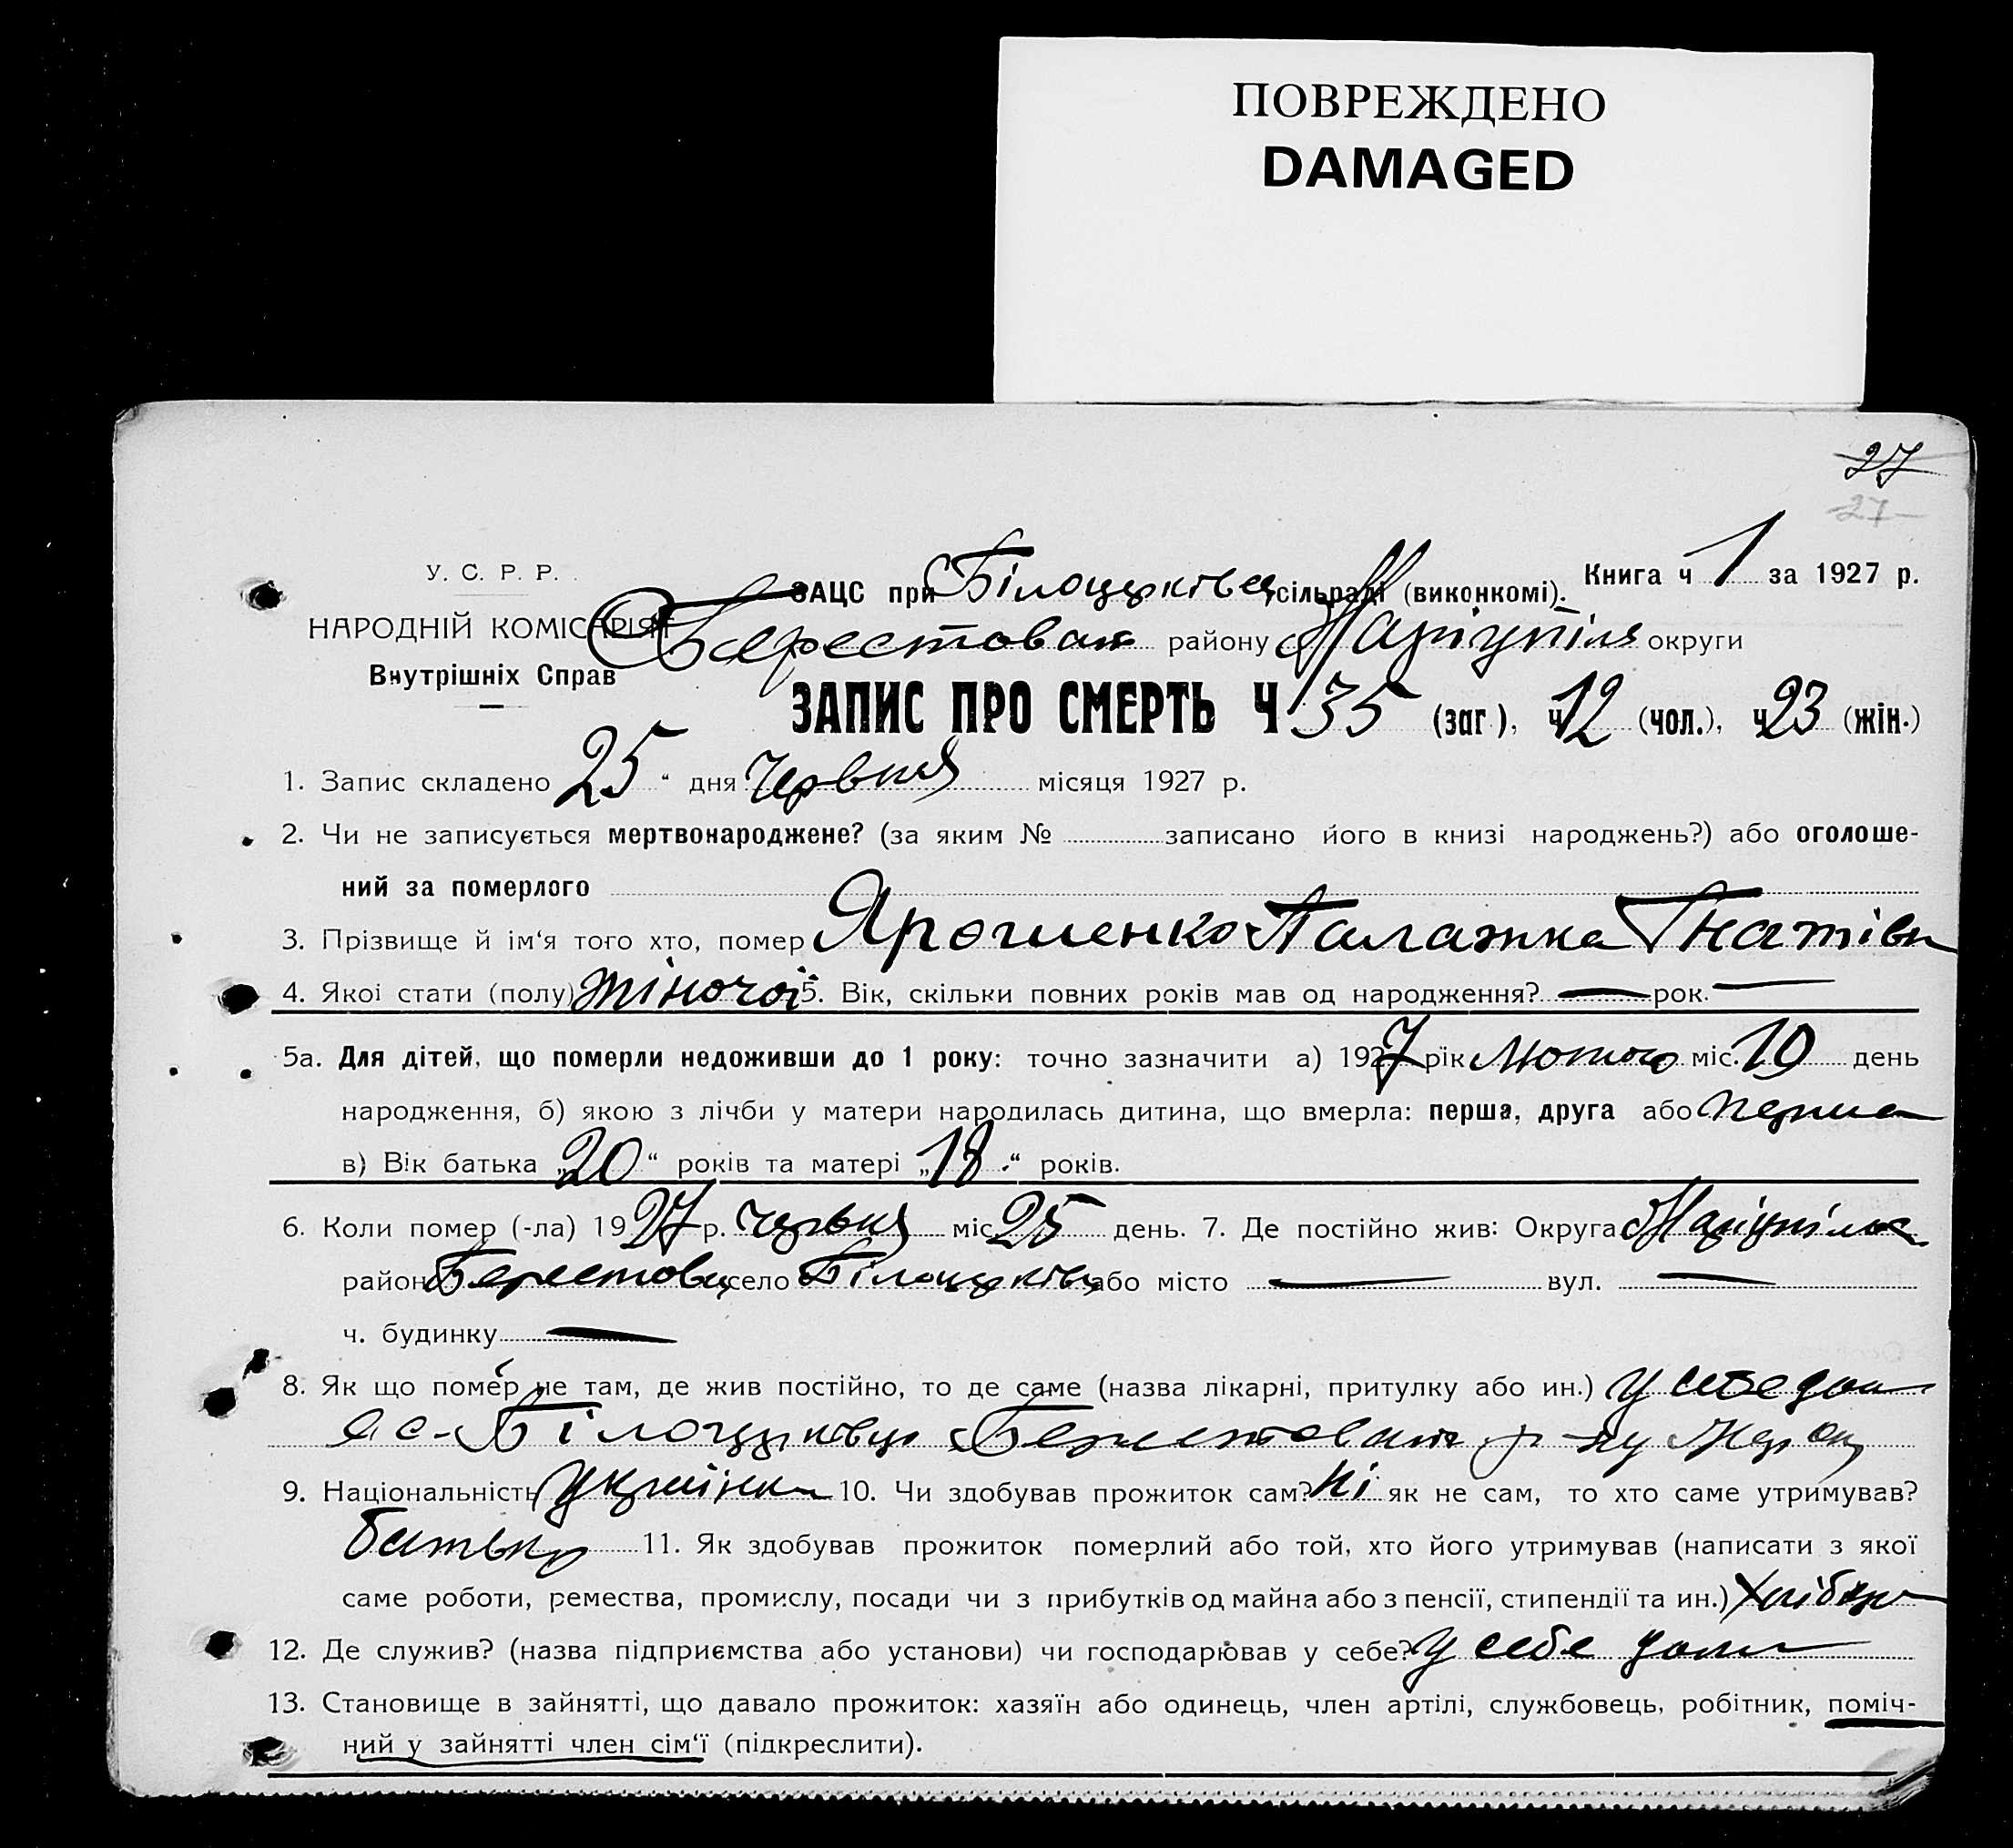 ПОВРЕЖДЕНО
DAMAGED
27
27
У. С. Р. Р.
НАРОДНІЙ КОМІСАРІЯТ
Внутрішніх Справ
ЗАЦС при Білоцерківец сільраді (виконкомі). Книга ч 1 за 1927 р.
Берестован району Маріупіля округи
ЗАПИС ПРО СМЕРТЬ Ч 35 (заг.), ч 12 (чол.), ч 23 (жін.)
1. Запис складено 25 “ дня Червня місяця 1927 р.
2. Чи не записується мертвонароджене? (за яким № записано його в книзі народжень?) або оголоше-
ний за померлого
3. Прізвище й ім‘я того хто, помер Ярошенко Палажка Гнатівн
4. Якої стати (полу) жіночої 5. Вік, скільки повних років мав од народження? — рок. —
5а. Для дітей, що померли недоживши до 1 року: точно зазначити а) 1927 рік Лютого міс. 10 день
народження, б) якою з лічби у матери народилась дитина, що вмерла: перша, друга або перша
в) Вік батька „20“ років та матері „18“ років.
6. Коли помер (-ла) 1927 р. червня міс. 25 день. 7. Де постійно жив: Округа Маріупільс
район Берестовец село Білоцерківц або місто — вул. —
ч. будинку —
8. Як що помер не там, де жив постійно, то де саме (назва лікарні, притулку або ин.) у себе дом
с-Білоцерківці Берестован р-ну Мар ок
9. Національність Українка 10. Чи здобував прожиток сам? Ні як не сам, то хто саме утримував?
батько 11. Як здобував прожиток померлий або той, хто його утримував (написати з якої
саме роботи, ремества, промислу, посади чи з прибутків од майна або з пенсії, стипендії та ин.) Хлібор
12. Де служив? (назва підприємства або установи) чи господарював у себе? У себе дома
13. Становище в зайнятті, що давало прожиток: хазяїн або одинець, член артілі, службовець, робітник, поміч-
ний у зайнятті член сім‘ї (підкреслити).